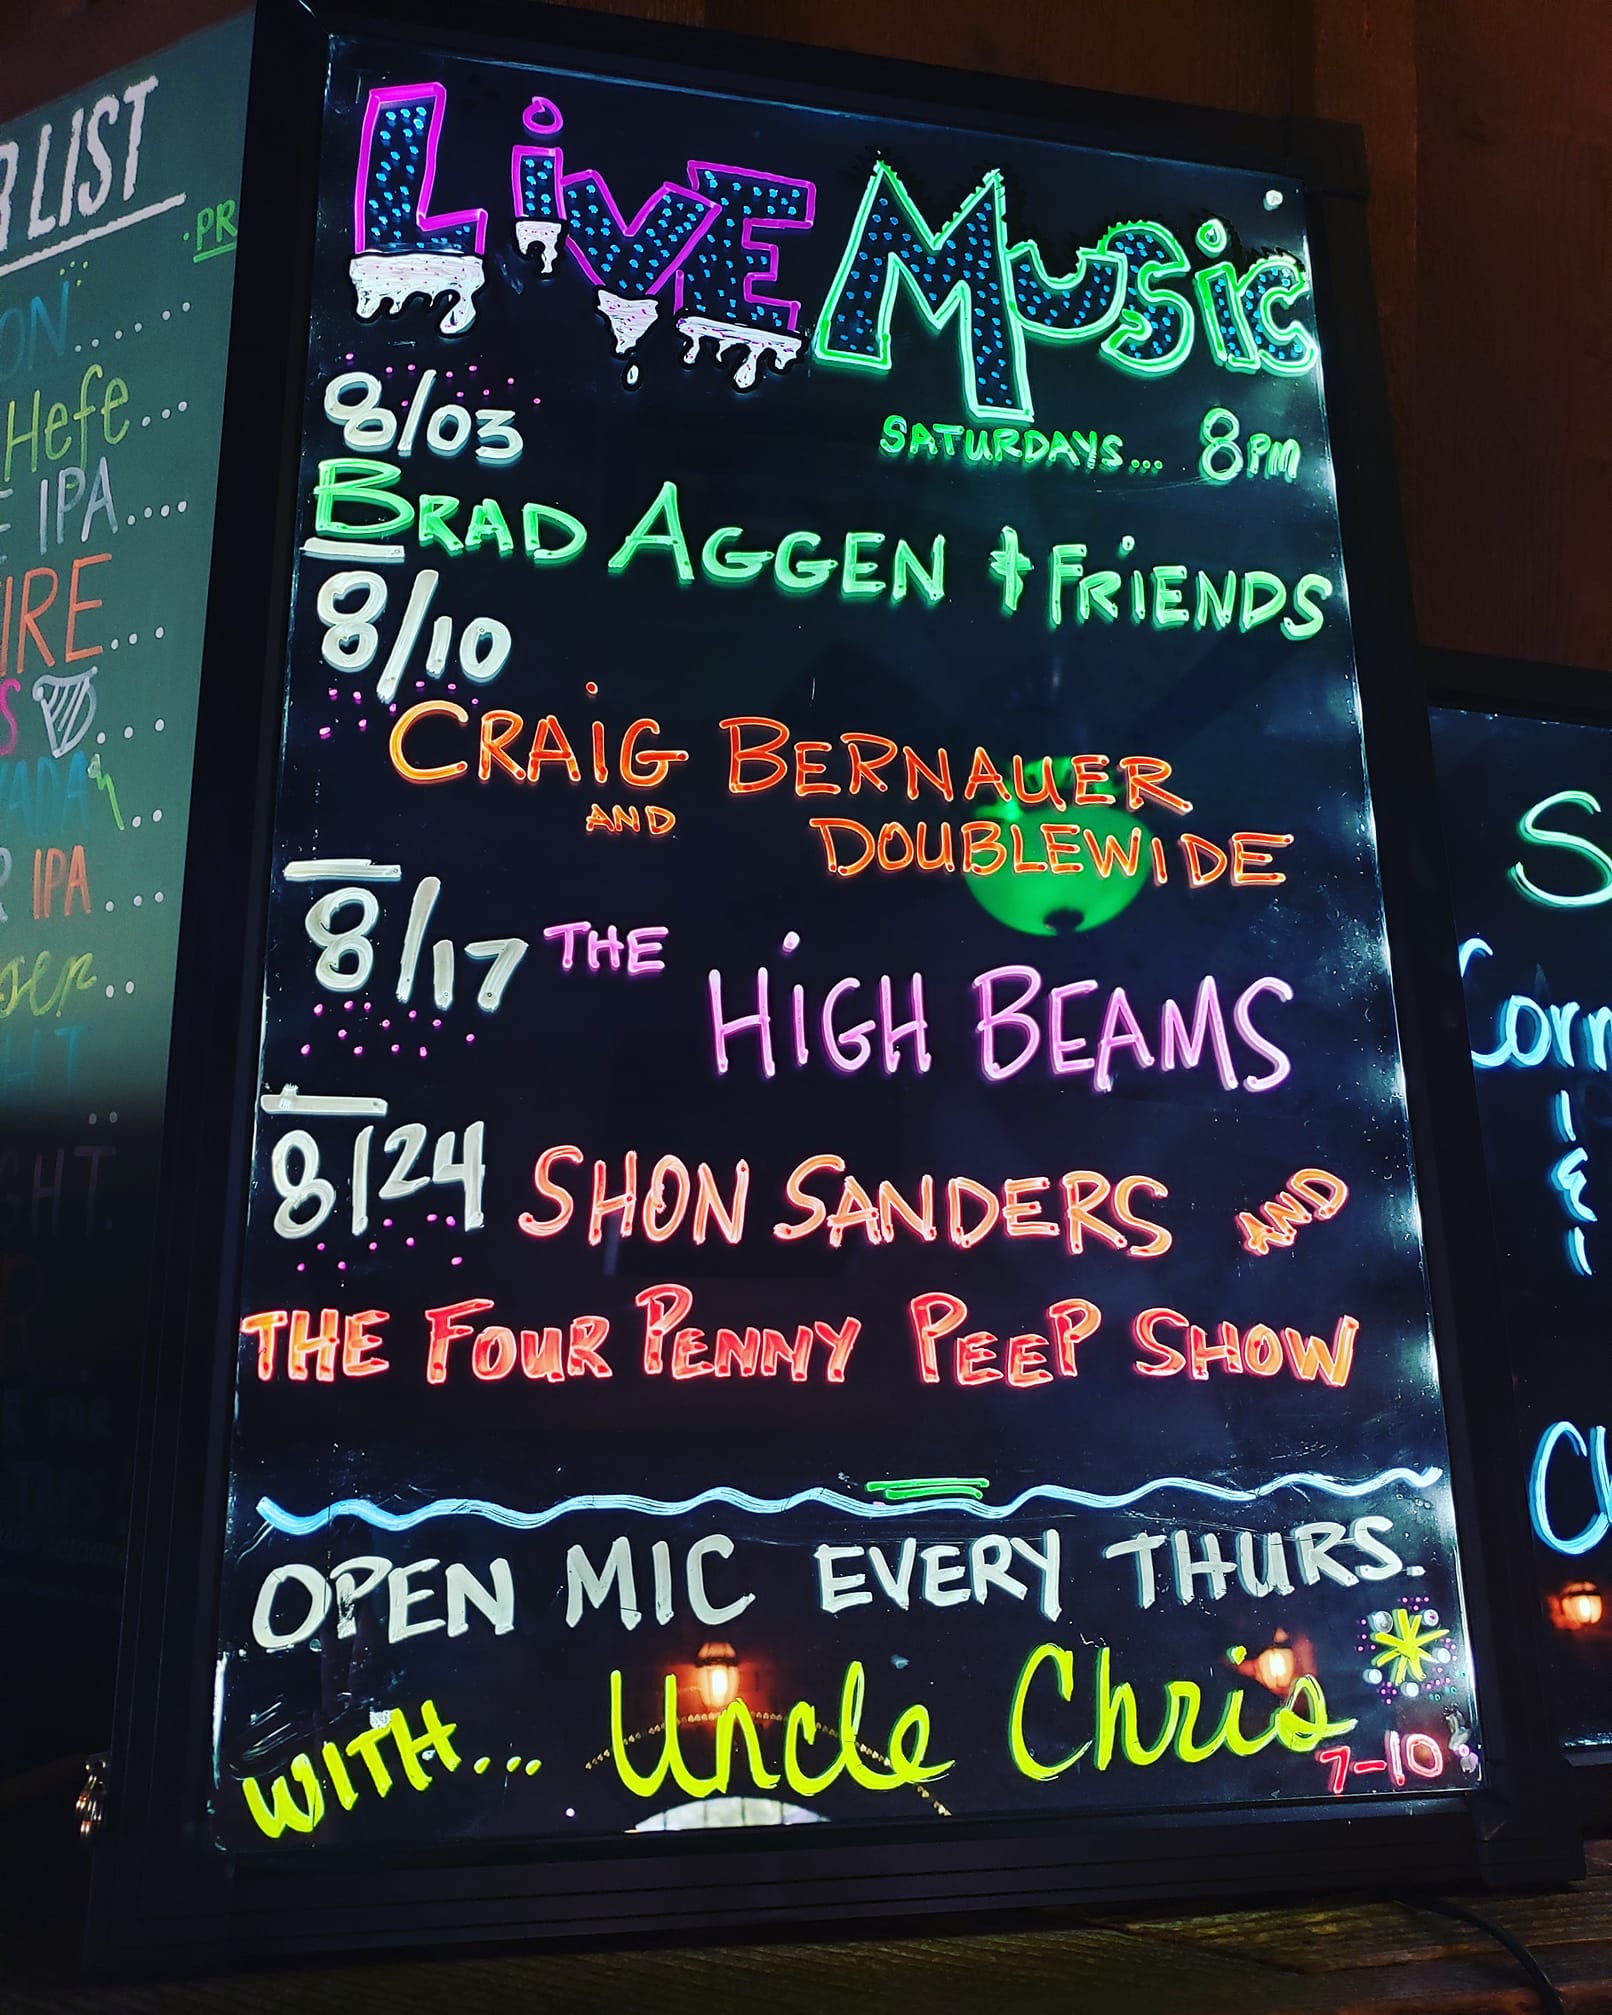 LIST
PR
ON......
Hefe...
IPA....
IRE...
S...
ADA..
IPA...
ser..
GHT.
LiVE Music
SATURDAYS... 8PM
8/03
BRAD AGGEN & FRiENDS
8/10
CRAiG BERNAUER
AND DOUBLEWIDE
8/17 THE HiGH BEAMS
8/24 SHON SANDERS AND
THE FOUR PENNY PEEP SHOW
OPEN MIC EVERY THURS.
WITH... Uncle Chris
7-10
S
Corn
&
Ch